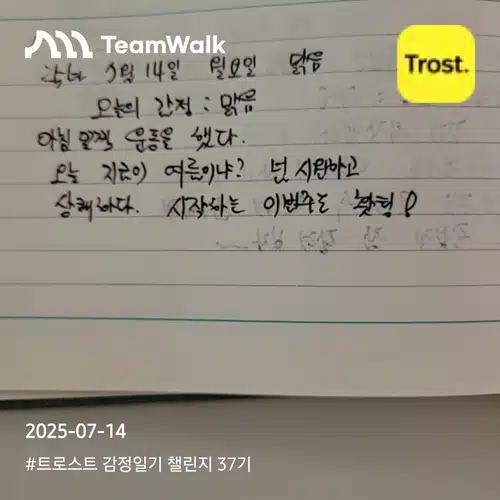 TeamWalk
Trost.
7월 14일 월요일 맑음
오늘의 감정 : 맑음
아침 일찍 운동을 했다.
오늘 지금이 여름이냐? 넌 시원하고
상쾌하다. 시작하는 이번주도 화이팅!
2025-07-14
#트로스트 감정일기 챌린지 37기